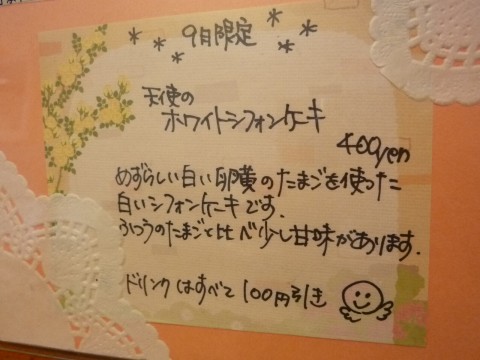 9月限定
天使の
ホワイトシフォンケーキ
400yen
めずらしい白い卵黄のたまごを使った
白いシフォンケーキです.
ふつうのたまごと比べ少し甘味があります.
ドリンクはすべて100円引き